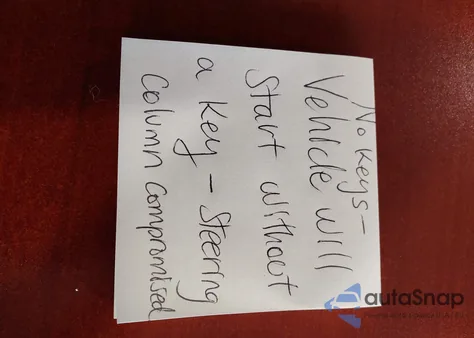 No keys-
Vehicle will
Start without
a key - Steering
Column compromised
autaSnap